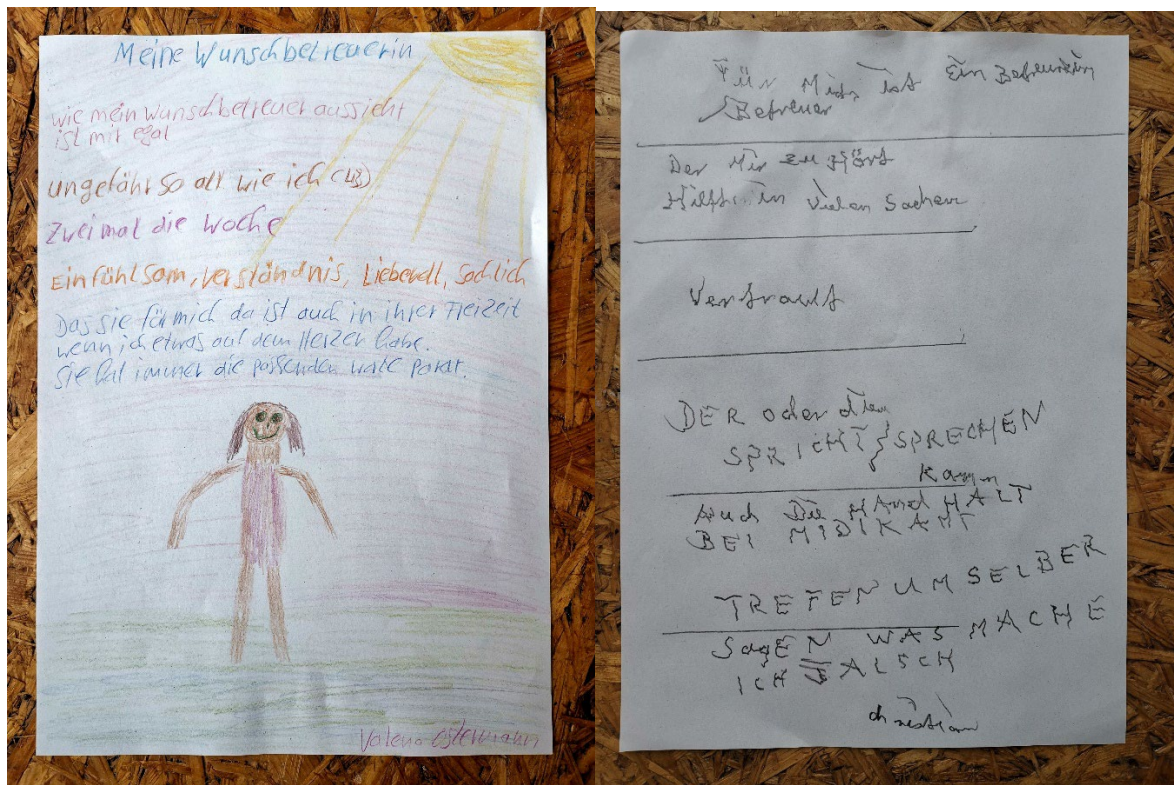 Meine Wunschbetreuerin
wie mein Wunschbetreuer aussieht
ist mir egal
ungefähr so alt wie ich (48)
Zweimal die Woche
Einfühlsam, verständnis, Liebevoll, Sachlich
Das sie für mich da ist auch in ihrer Freizeit
wenn ich etwas auf dem Herzen habe.
Sie hat immer die passenden worte parat.
Für Mich ist Ein
Betreuer
Der Mir zu Hört
Hilft in vielen Sachen
Vertraut
DER oder die
SPRICHT } SPRECHEN
Kann
Auch Die HAnd HALT
BEI
TREFEN UM SELBER
SagEN WAS MACHE
ICH FALSCH
christian